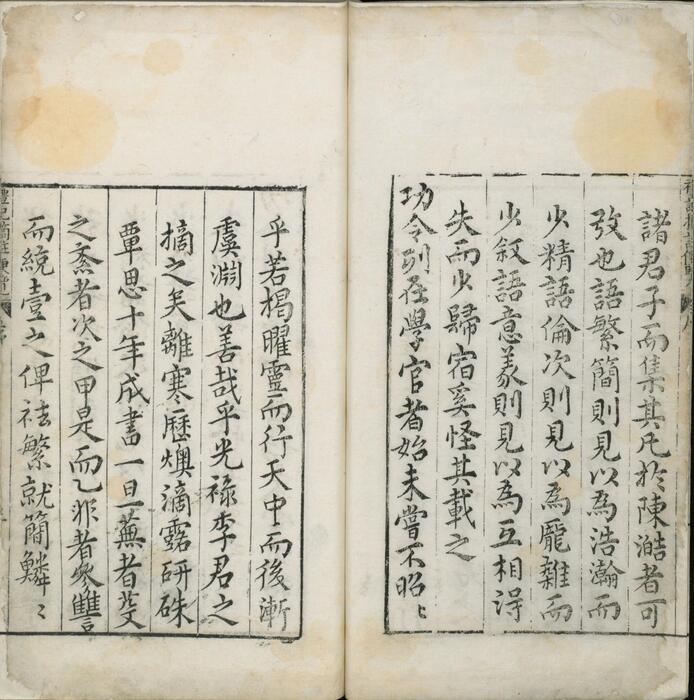 諸君子而集其凡於陳澔者可
攷也語繁簡則見以為浩瀚而
少精語倫次則見以為龐雜而
少叙語意義則見以為互相淂
失而少歸宿奚怪其載之
功令列在學官者始未嘗不昭〻
乎若揭曜靈而行天中而後漸
虞淵也善哉乎光祿李君之
摘之矣離寒歷燠滴露研硃
覃思十年成書一旦蕪者芟
之紊者次之甲是而乙非者參讐
而統壹之俾祛繁就簡鱗〻